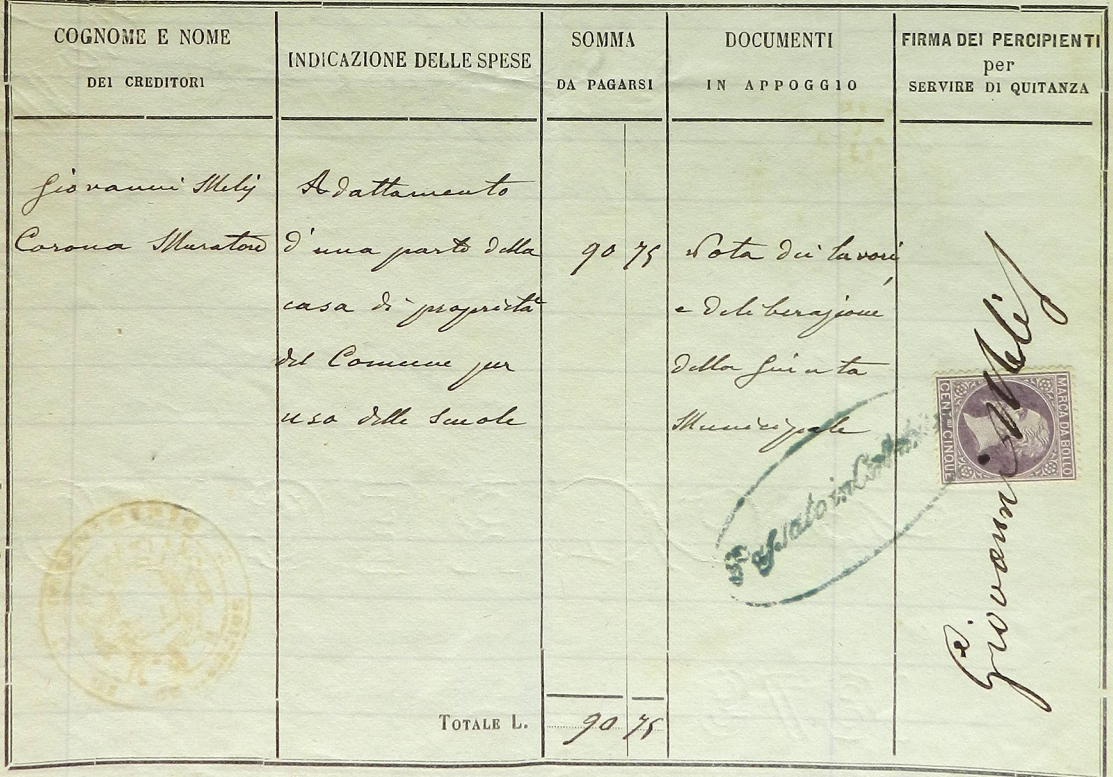 COGNOME E NOME
DEI CREDITORI
INDICAZIONE DELLE SPESE
SOMMA
DA PAGARSI
DOCUMENTI
IN APPOGGIO
FIRMA DEI PERCIPIENTI
per
SERVIRE DI QUITANZA
Giovanni Melij
Corona Muratore
Adattamento
d'una parte della
casa di proprietà
del Comune per
uso delle scuole
90 75
Nota dei lavori
e deliberazione
della Giunta
Municipale
Giovanni Melij
MARCA DA BOLLO
CENT. CINQUE
TOTALE L.
90 75